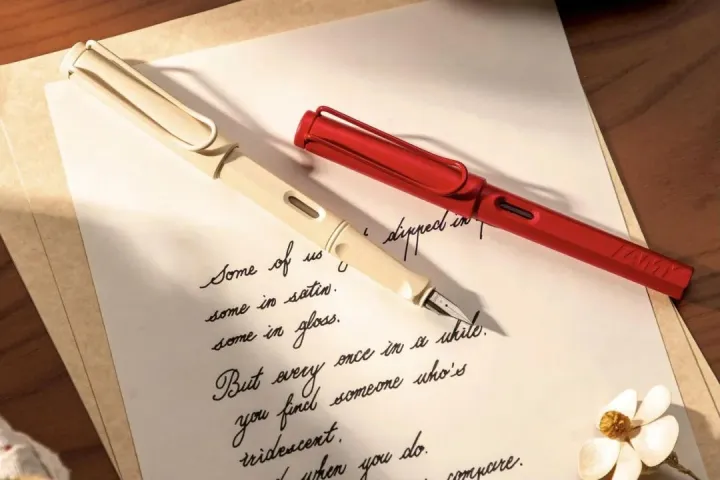 Some of us dipped in
some in satin.
some in gloss.
But every once in a while.
you find someone who's
iridescent.
when you do.
compare.
LAMY